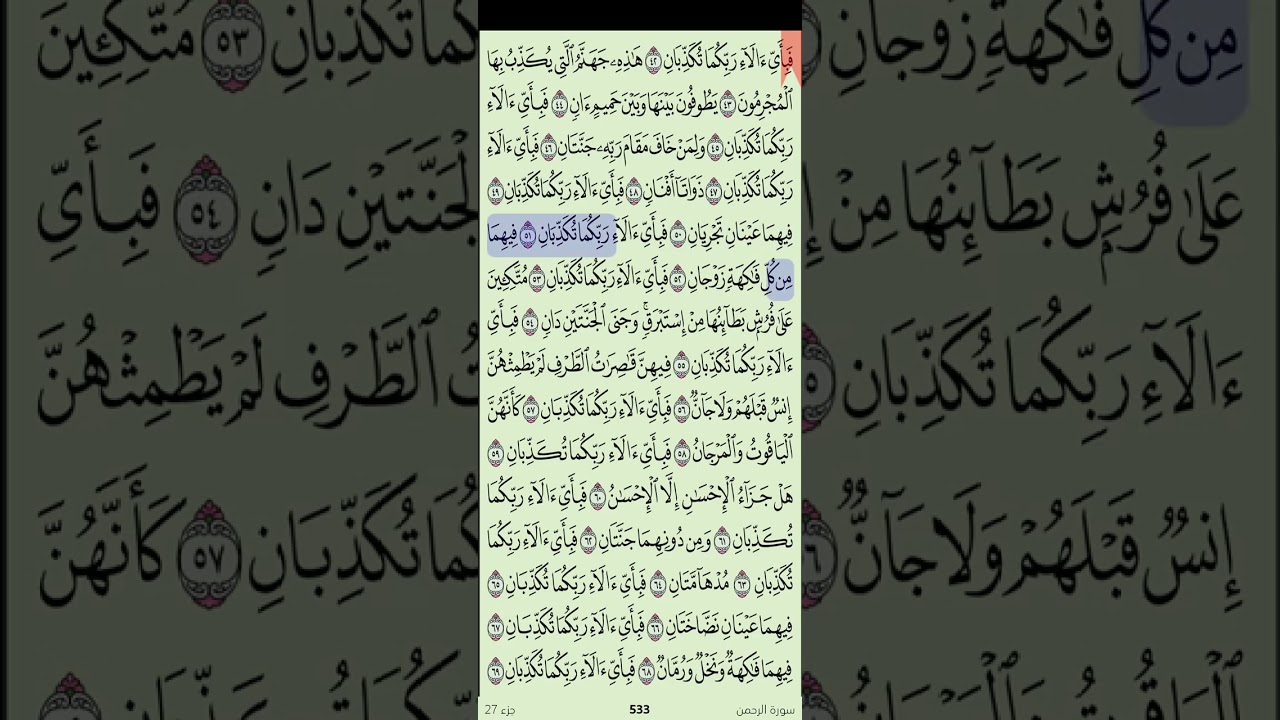 فَبِأَىِّ ءَالَآءِ رَبِّكُمَا تُكَذِّبَانِ ٤٢ هَٰذِهِۦ جَهَنَّمُ ٱلَّتِى يُكَذِّبُ بِهَا
ٱلْمُجْرِمُونَ ٤٣ يَطُوفُونَ بَيْنَهَا وَبَيْنَ حَمِيمٍ ءَانٍ ٤٤ فَبِأَىِّ ءَالَآءِ
رَبِّكُمَا تُكَذِّبَانِ ٤٥ وَلِمَنْ خَافَ مَقَامَ رَبِّهِۦ جَنَّتَانِ ٤٦ فَبِأَىِّ ءَالَآءِ
رَبِّكُمَا تُكَذِّبَانِ ٤٧ ذَوَاتَآ أَفْنَانٍ ٤٨ فَبِأَىِّ ءَالَآءِ رَبِّكُمَا تُكَذِّبَانِ ٤٩
فِيهِمَا عَيْنَانِ تَجْرِيَانِ ٥٠ فَبِأَىِّ ءَالَآءِ رَبِّكُمَا تُكَذِّبَانِ ٥١ فِيهِمَا
مِن كُلِّ فَٰكِهَةٍ زَوْجَانِ ٥٢ فَبِأَىِّ ءَالَآءِ رَبِّكُمَا تُكَذِّبَانِ ٥٣ مُتَّكِـِٔينَ
عَلَىٰ فُرُشٍۭ بَطَآئِنُهَا مِنْ إِسْتَبْرَقٍۚ وَجَنَى ٱلْجَنَّتَيْنِ دَانٍ ٥٤ فَبِأَىِّ
ءَالَآءِ رَبِّكُمَا تُكَذِّبَانِ ٥٥ فِيهِنَّ قَٰصِرَٰتُ ٱلطَّرْفِ لَمْ يَطْمِثْهُنَّ
إِنسٌ قَبْلَهُمْ وَلَا جَآنٌّ ٥٦ فَبِأَىِّ ءَالَآءِ رَبِّكُمَا تُكَذِّبَانِ ٥٧ كَأَنَّهُنَّ
ٱلْيَاقُوتُ وَٱلْمَرْجَانُ ٥٨ فَبِأَىِّ ءَالَآءِ رَبِّكُمَا تُكَذِّبَانِ ٥٩
هَلْ جَزَآءُ ٱلْإِحْسَٰنِ إِلَّا ٱلْإِحْسَٰنُ ٦٠ فَبِأَىِّ ءَالَآءِ رَبِّكُمَا
تُكَذِّبَانِ ٦١ وَمِن دُونِهِمَا جَنَّتَانِ ٦٢ فَبِأَىِّ ءَالَآءِ رَبِّكُمَا
تُكَذِّبَانِ ٦٣ مُدْهَآمَّتَانِ ٦٤ فَبِأَىِّ ءَالَآءِ رَبِّكُمَا تُكَذِّبَانِ ٦٥
فِيهِمَا عَيْنَانِ نَضَّاخَتَانِ ٦٦ فَبِأَىِّ ءَالَآءِ رَبِّكُمَا تُكَذِّبَانِ ٦٧
فِيهِمَا فَٰكِهَةٌ وَنَخْلٌ وَرُمَّانٌ ٦٨ فَبِأَىِّ ءَالَآءِ رَبِّكُمَا تُكَذِّبَانِ ٦٩
سورة الرحمن 533 جزء 27
مِن كُلِّ فَٰكِهَةٍ زَوْجَانِ
عَلَىٰ فُرُشٍۭ بَطَآئِنُهَا مِنْ
ءَالَآءِ رَبِّكُمَا تُكَذِّبَانِ
إِنسٌ قَبْلَهُمْ وَلَا جَآنٌّ
تُكَذِّبَانِ ٥٣ مُتَّكِـِٔينَ
ٱلْجَنَّتَيْنِ دَانٍ ٥٤ فَبِأَىِّ
ٱلطَّرْفِ لَمْ يَطْمِثْهُنَّ
تُكَذِّبَانِ ٥٧ كَأَنَّهُنَّ